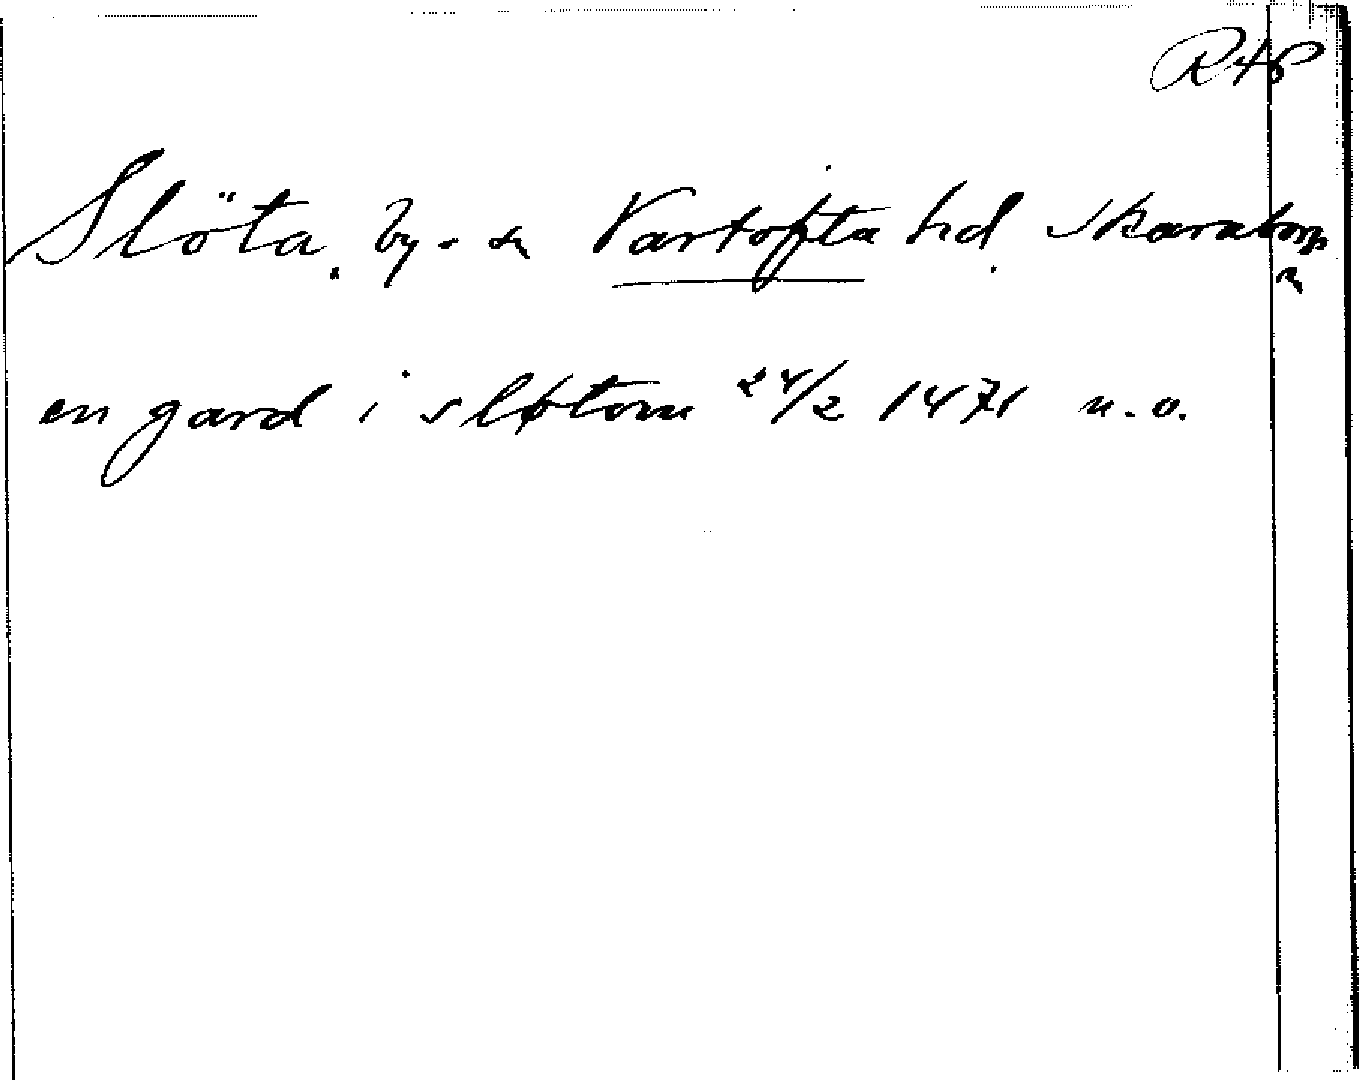 RAP
Slöta. by o sn Vartofta hd. Skaraborgs
en gard i sløtom 24/2 1471 n.o.